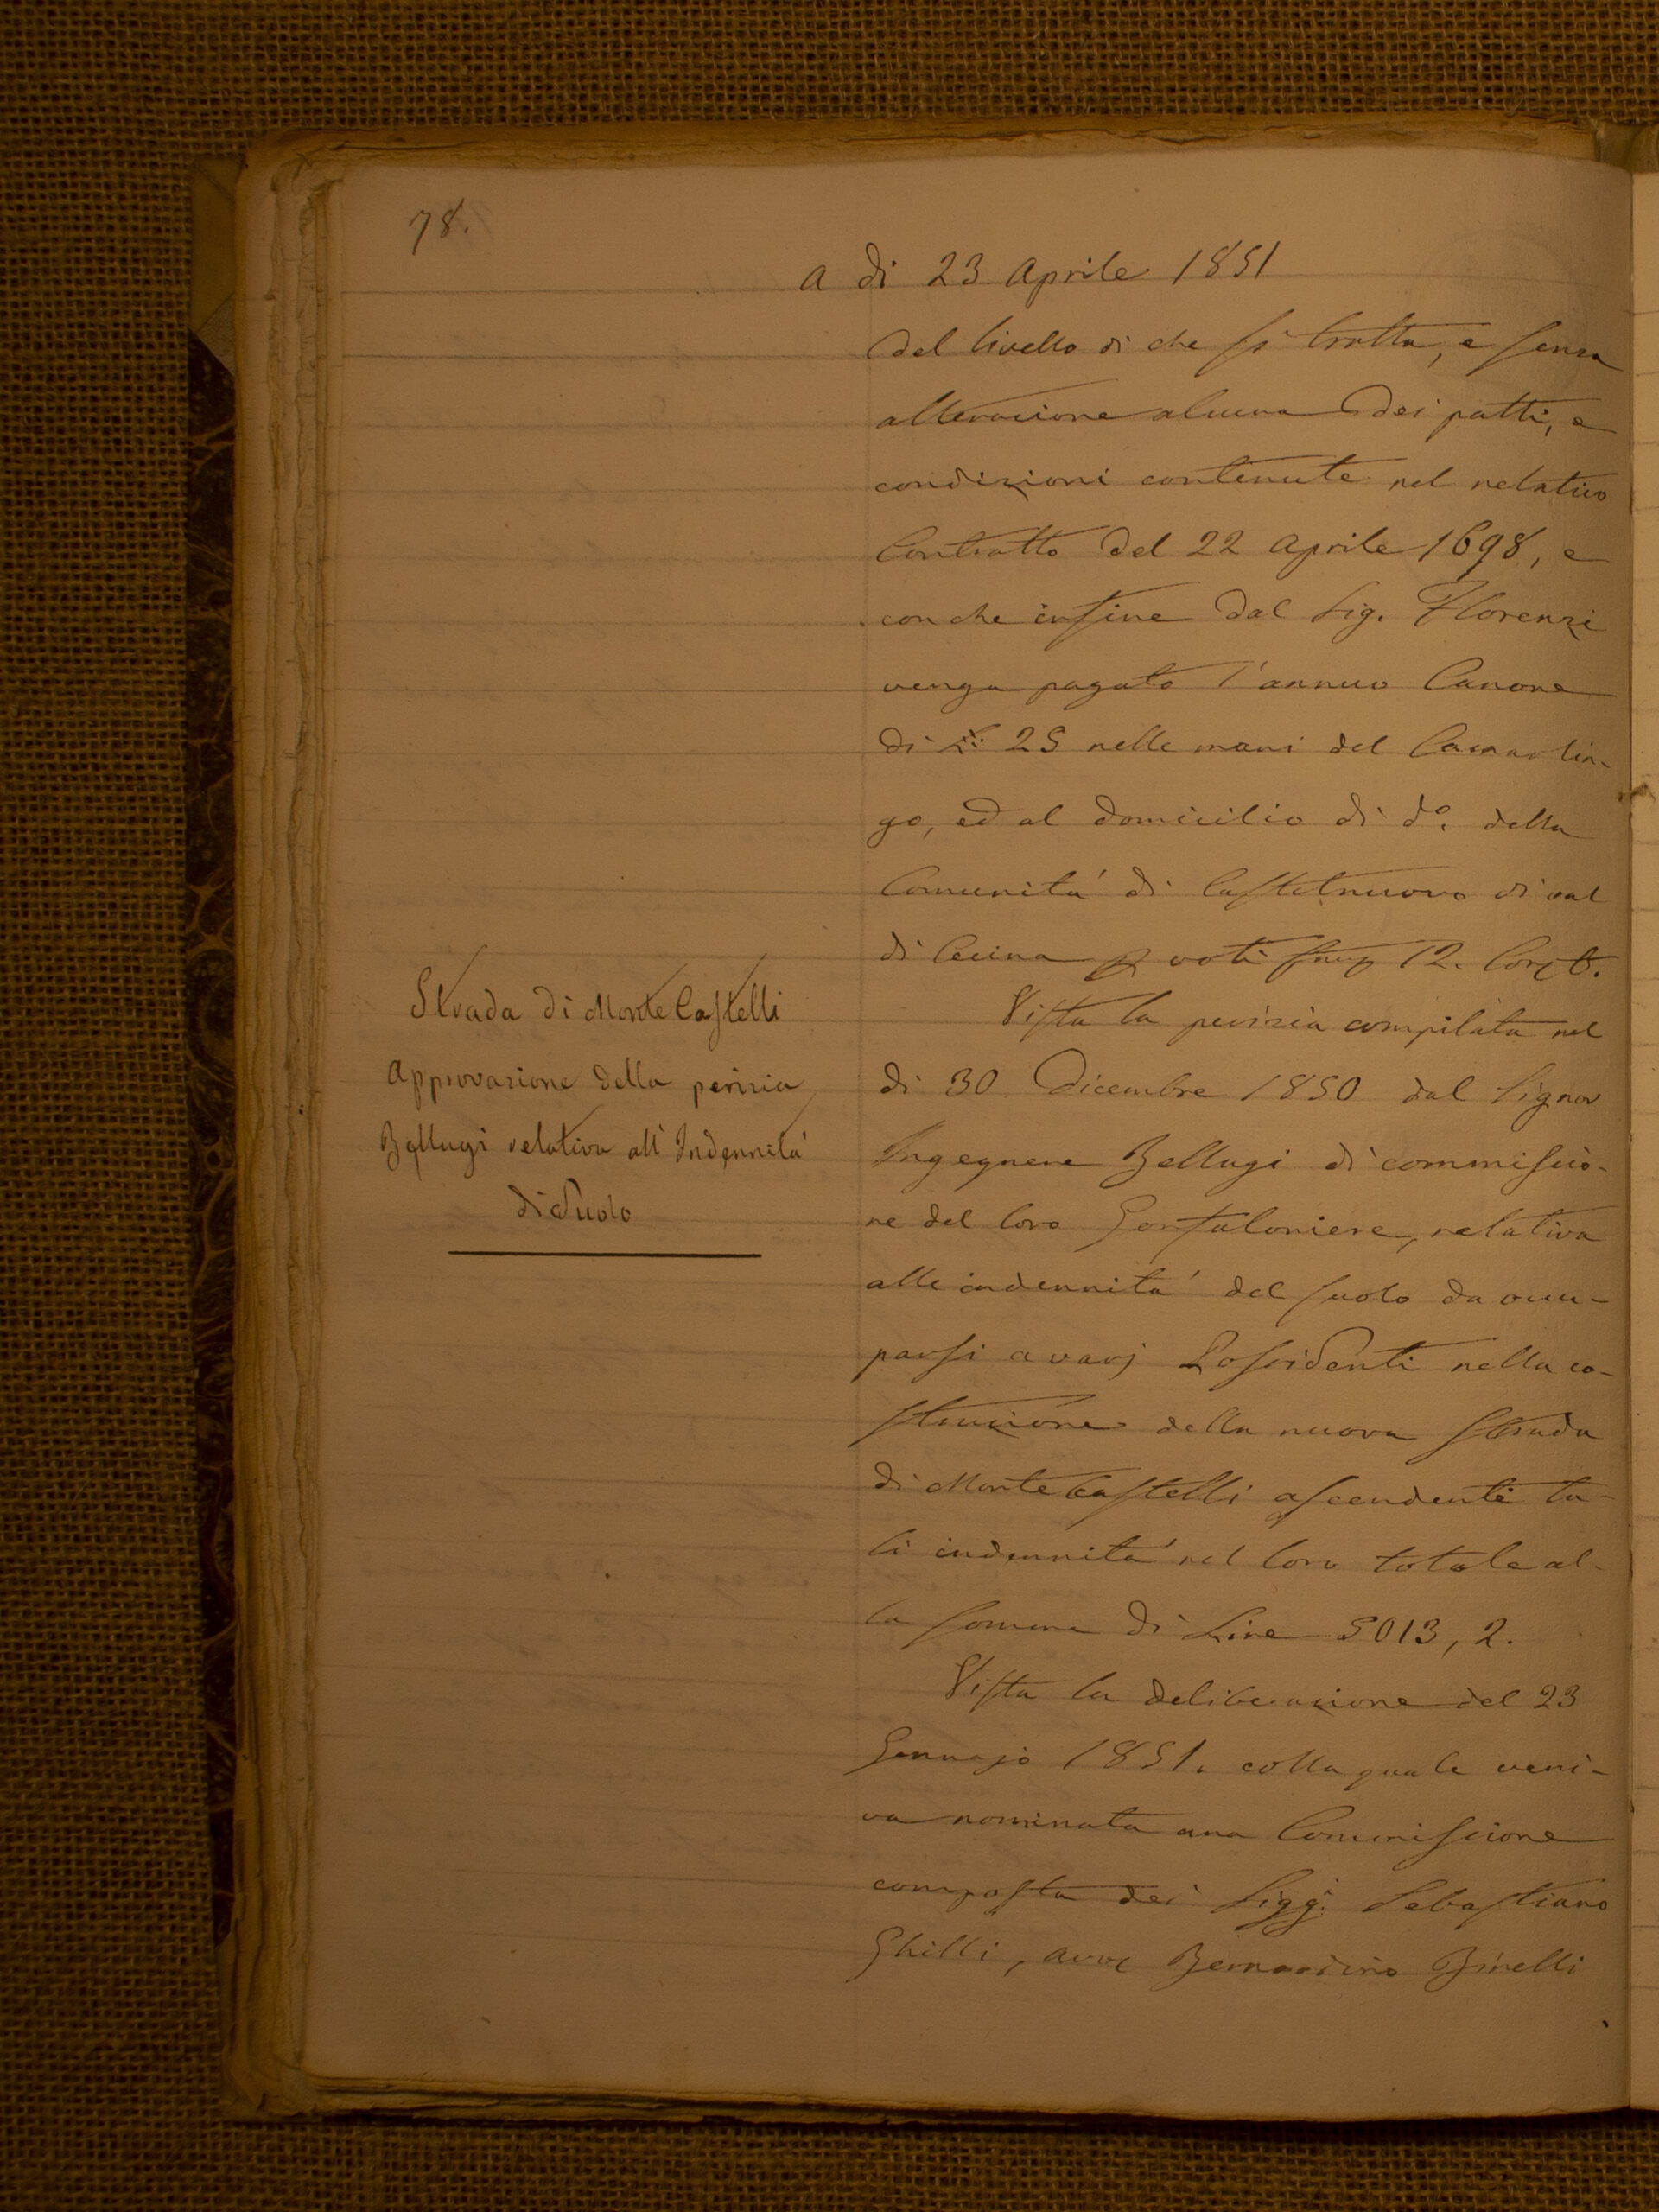 78.
A di 23 Aprile 1851
del livello di che si tratta, e senza
alterazione alcuna dei patti, e
condizioni contenute nel relativo
Contratto del 22 Aprile 1698, e
con che infine dal Sig. Florenzi
venga pagato l'annuo Canone
di 25 nelle mani del Camarlin-
go, ed al domicilio di do. della
Comunità di Castelnuovo di val
di Cecina voti 12.
Strada di Monte Castelli
Approvazione della perizia
Bellugi relativa all'Indennità
di Suolo
Vista la perizia compilata nel
di 30 Dicembre 1850 dal Signor
Ingegnere Bellugi di commissio-
ne del loro Gonfaloniere, relativa
alle indennità del suolo da occu-
parsi a varj Possidenti nella co-
struzione della nuova strada
di Monte Castelli ascendenti ta-
li indennità nel loro totale al-
la somma di Lire 5013, 2.
Vista la deliberazione del 23
Gennajo 1851. colla quale veni-
va nominata una Commissione
composta dei Sigg.i Sebastiano
Ghilli, Bernardino Binelli